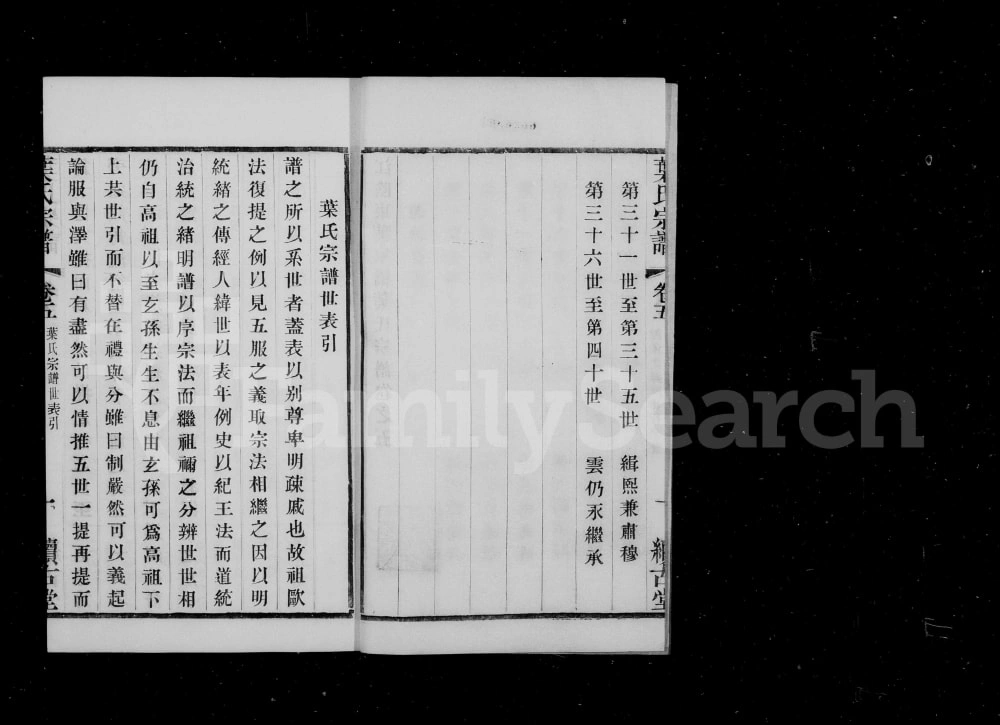 葉氏宗譜 卷五 一 續古堂
第三十一世至第三十五世 緝熙兼肅穆
第三十六世至第四十世 雲仍永繼承
葉氏宗譜世表引
譜之所以系世者蓋表以別尊卑明疎戚也故祖歐
法復提之例以見五服之義取宗法相繼之因以明
統緒之傳經人緯世以表年例史以紀王法而道統
治統之緒明譜以序宗法而繼祖禰之分辨世世相
仍自高祖以至玄孫生生不息由玄孫可爲高祖下
上共世引而不替在禮與分雖曰制嚴然可以義起
論服與澤雖曰有盡然可以情推五世一提再提而
葉氏宗譜 卷五 葉氏宗譜世表引 一 續古堂
FamilySearch